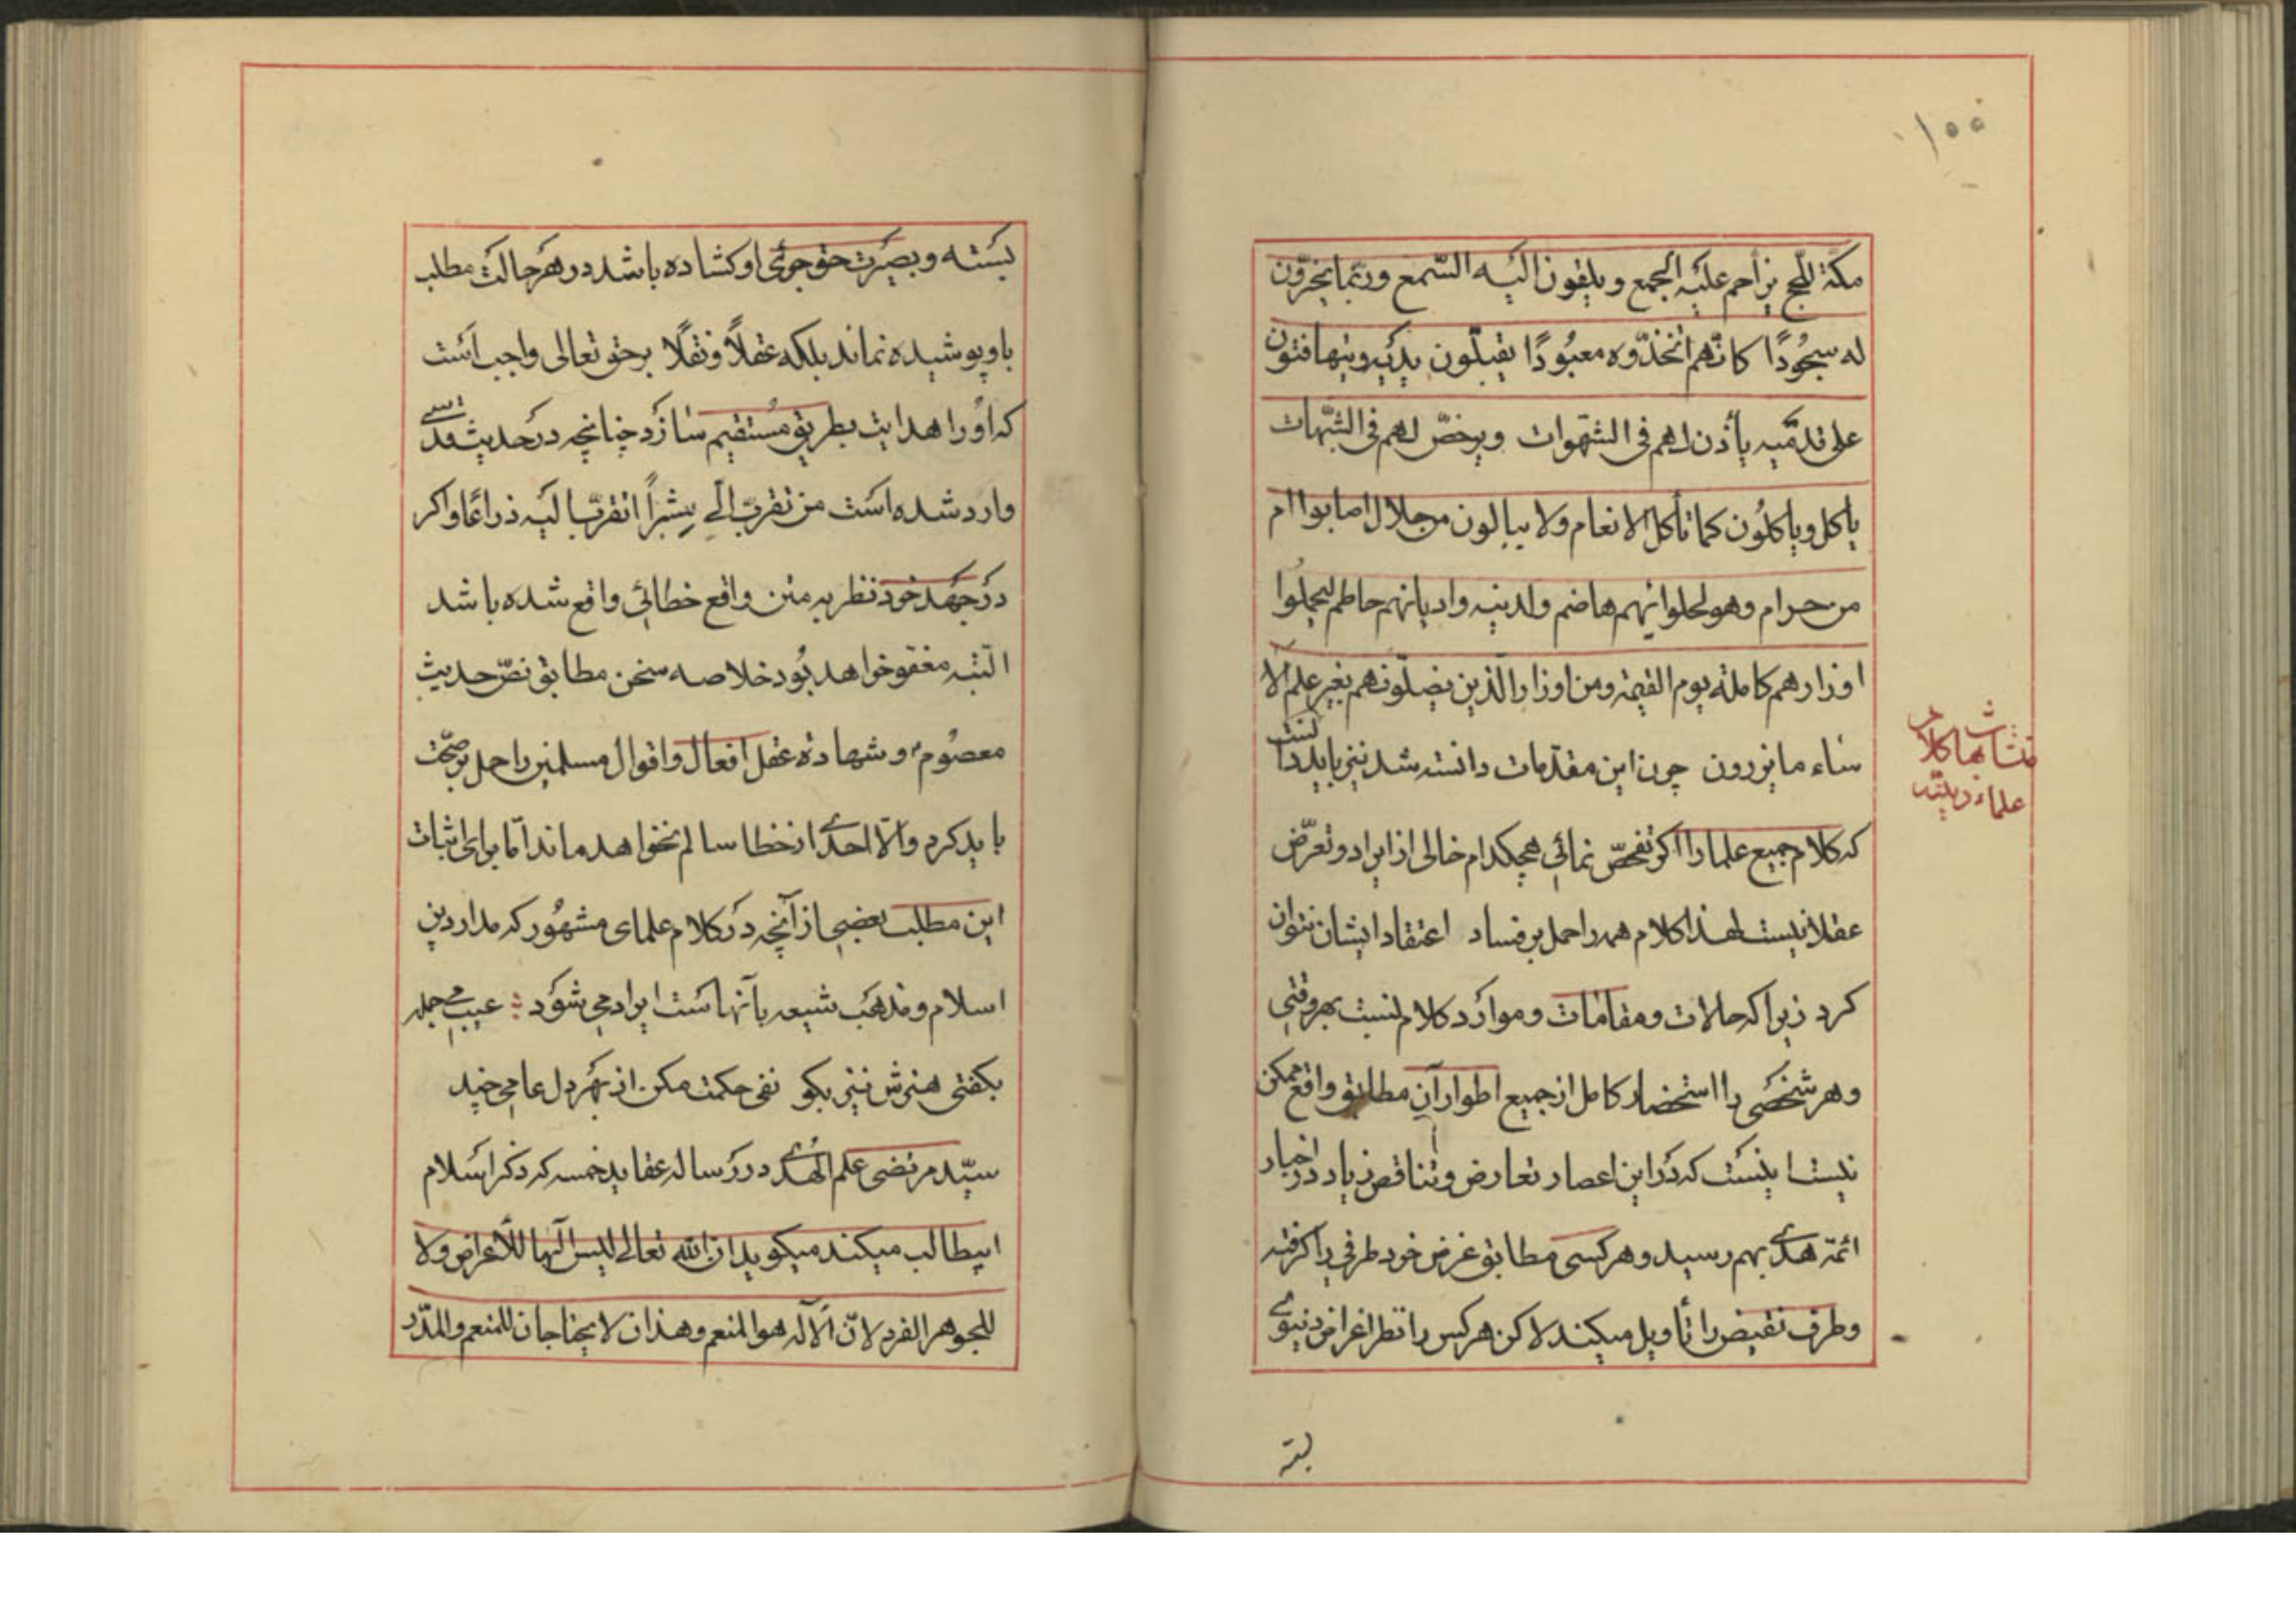 ۱۰۰
مکّة للحج یزاحم علیه الجمع و یلقون الیه السّمع و ربّما یخرّون
له سجُودًا کانّهم اتّخذوه معبُودًا یقبّلون یدیه و یتهافتون
علی قدمیه یأذن لهم فی الشهوات و یرخّص لهم فی الشّبهات
یاکل و یاکلُون کما تأکل الانعام ولا یبالون من حلال اصابوا ام
من حرام وهو لحلوائهم هاضم ولدینه و ادیانهم حاطم لیحملُوا
اوزارهم کاملة یوم القیمة و من اوزار الّذین یضلّونهم بغیر علم الا
ساء ما یزرون چون این مقدّمات دانسته شد نیز باید دانست
که کلام جمیع علما را اکر تفحّص نمائی هیچکدام خالی از ایراد و تعرّض
عقلا نیست لهذا کلام همه را حمل بر فساد اعتقاد ایشان نتوان
کرد زیرا که حالات و مقامات و موارد کلام لنسبت بهر وقتی
و هر شخصی را استحضار کامل از جمیع اطوار آن مطابق واقع ممکن
نیست اینست که در این اعصار تعارض و تناقض زیاد در اخبار
ائمّه هدی بهم رسید و هرکسی مطابق غرض خود طرفی را کرفته
و طرف نقیض را تأویل میکند لاکن هرکس را نظر اغراض دنیوی
متشابهات کلام
علماء دینیّه
بسته و بصیرت حق جوئی او کشاده باشد در هر حالت مطلب
باو پوشیده نماند بلکه عقلاً و نقلًا بر حق تعالی واجب است
که او را هدایت بطریق مُستقیم سازد چنانچه در حدیث قدسی
وارد شده است من تقرب الّی شبراً اتقرب الیه ذراعًا و اکر
در جهد خود نظر به متن واقع خطائی واقع شده باشد
البتّه مغفو خواهد بُود خلاصه سخن مطابق نصّ حدیث
معصُوم و شهادة عقل افعال و اقوال مسلمین را حمل بر صحّت
باید کرد و الّا احدی از خطا سالم نخواهد ماند امّا برای اثبات
این مطلب بعضی از آنچه در کلام علمای مشهُور که مدار دین
اسلام و مذهب شیعه بآنها است ایراد می شود : عیب می جمله
بکفتی هنرش نیز بکو نفی حکمت مکن از بهر دل عامی چند
سیّد مرتضی علم الهُدی در رساله عقاید خمسه که ذکر اسلام
ابیطالب میکند میکوید ان الله تعالی لیس آلها للأعراض ولا
للجوهر الفرد لانّ الآله هو المنعم و هذان لا یحتاجان للمنعم و المدّبر
بسته